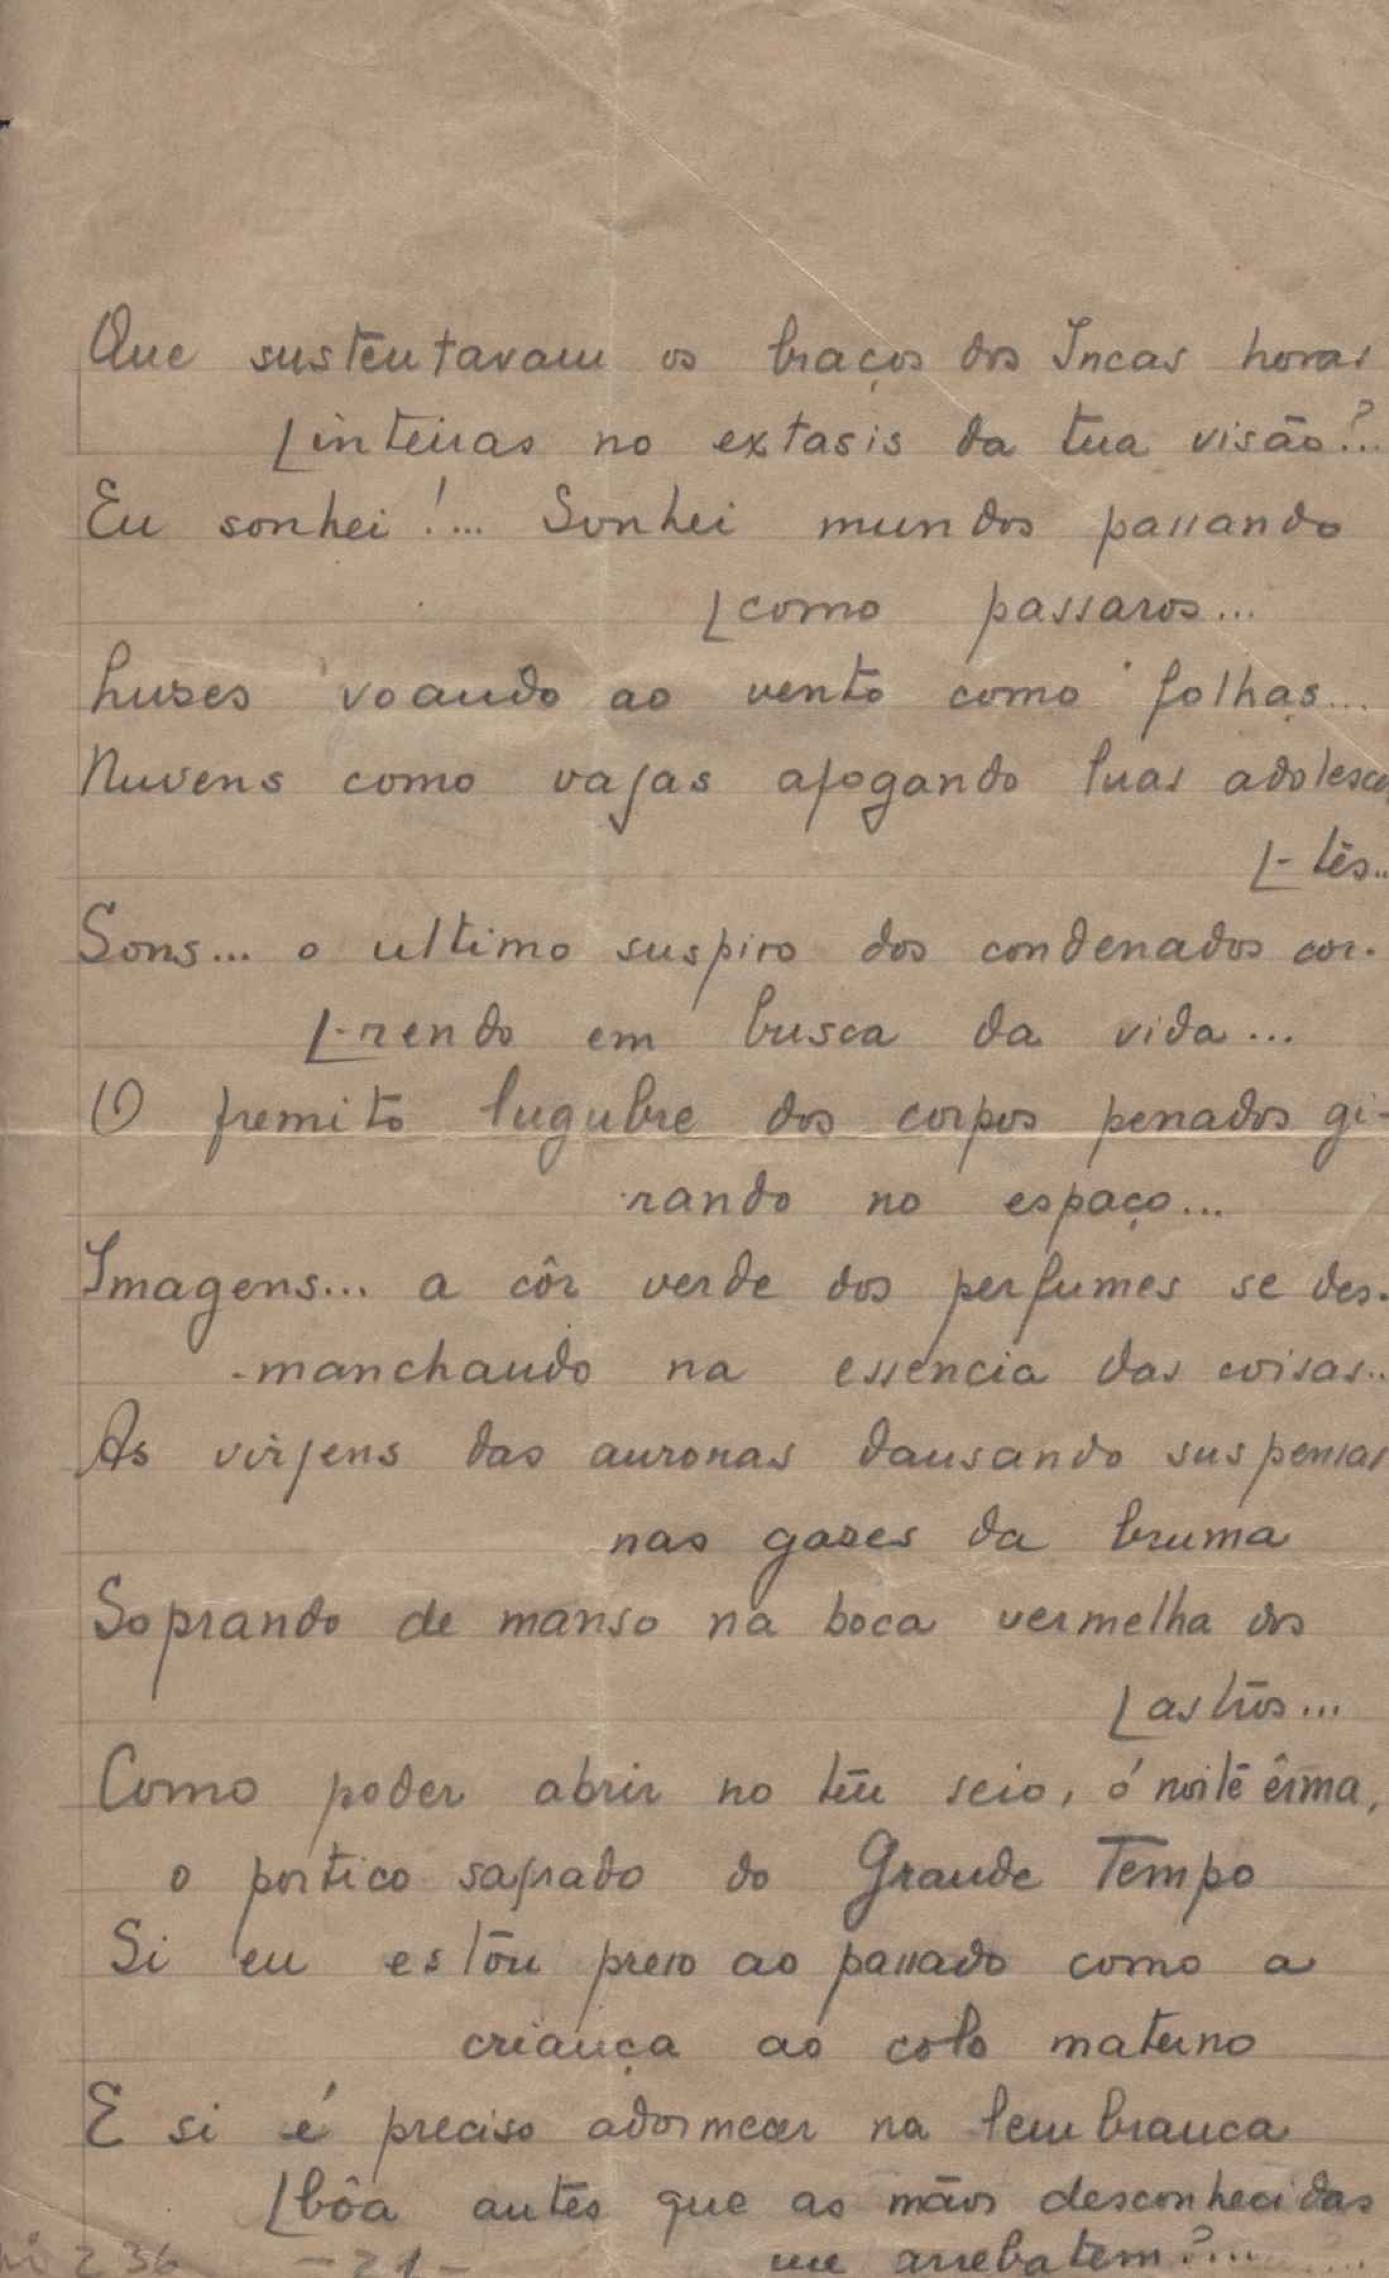 Que sustentavam os braços dos Incas horas
[inteiras no extasis da tua visão?...
Eu sonhei!... Sonhei mundos passando
[como passaros...
Luzes voando ao vento como folhas...
Nuvens como vagas afogando luas adolescen
[-tes...
Sons... o ultimo suspiro dos condenados cor-
[-rendo em busca da vida...
O fremito lugubre dos corpos penados gi-
-rando no espaço...
Imagens... a côr verde dos perfumes se des-
-manchando na essencia das coisas...
As virgens das auroras dansando suspensas
nas gazes da bruma
Soprando de manso na boca vermelha dos
[astros...
Como poder abrir no teu seio, ó noite êrma,
o portico sagrado do Grande Tempo
Si eu estou preso ao passado como a
criança ao colo materno
E si é preciso adormecer na lembranca
[bôa antes que as mãos desconhecidas
me arrebatem?...
236 -21-